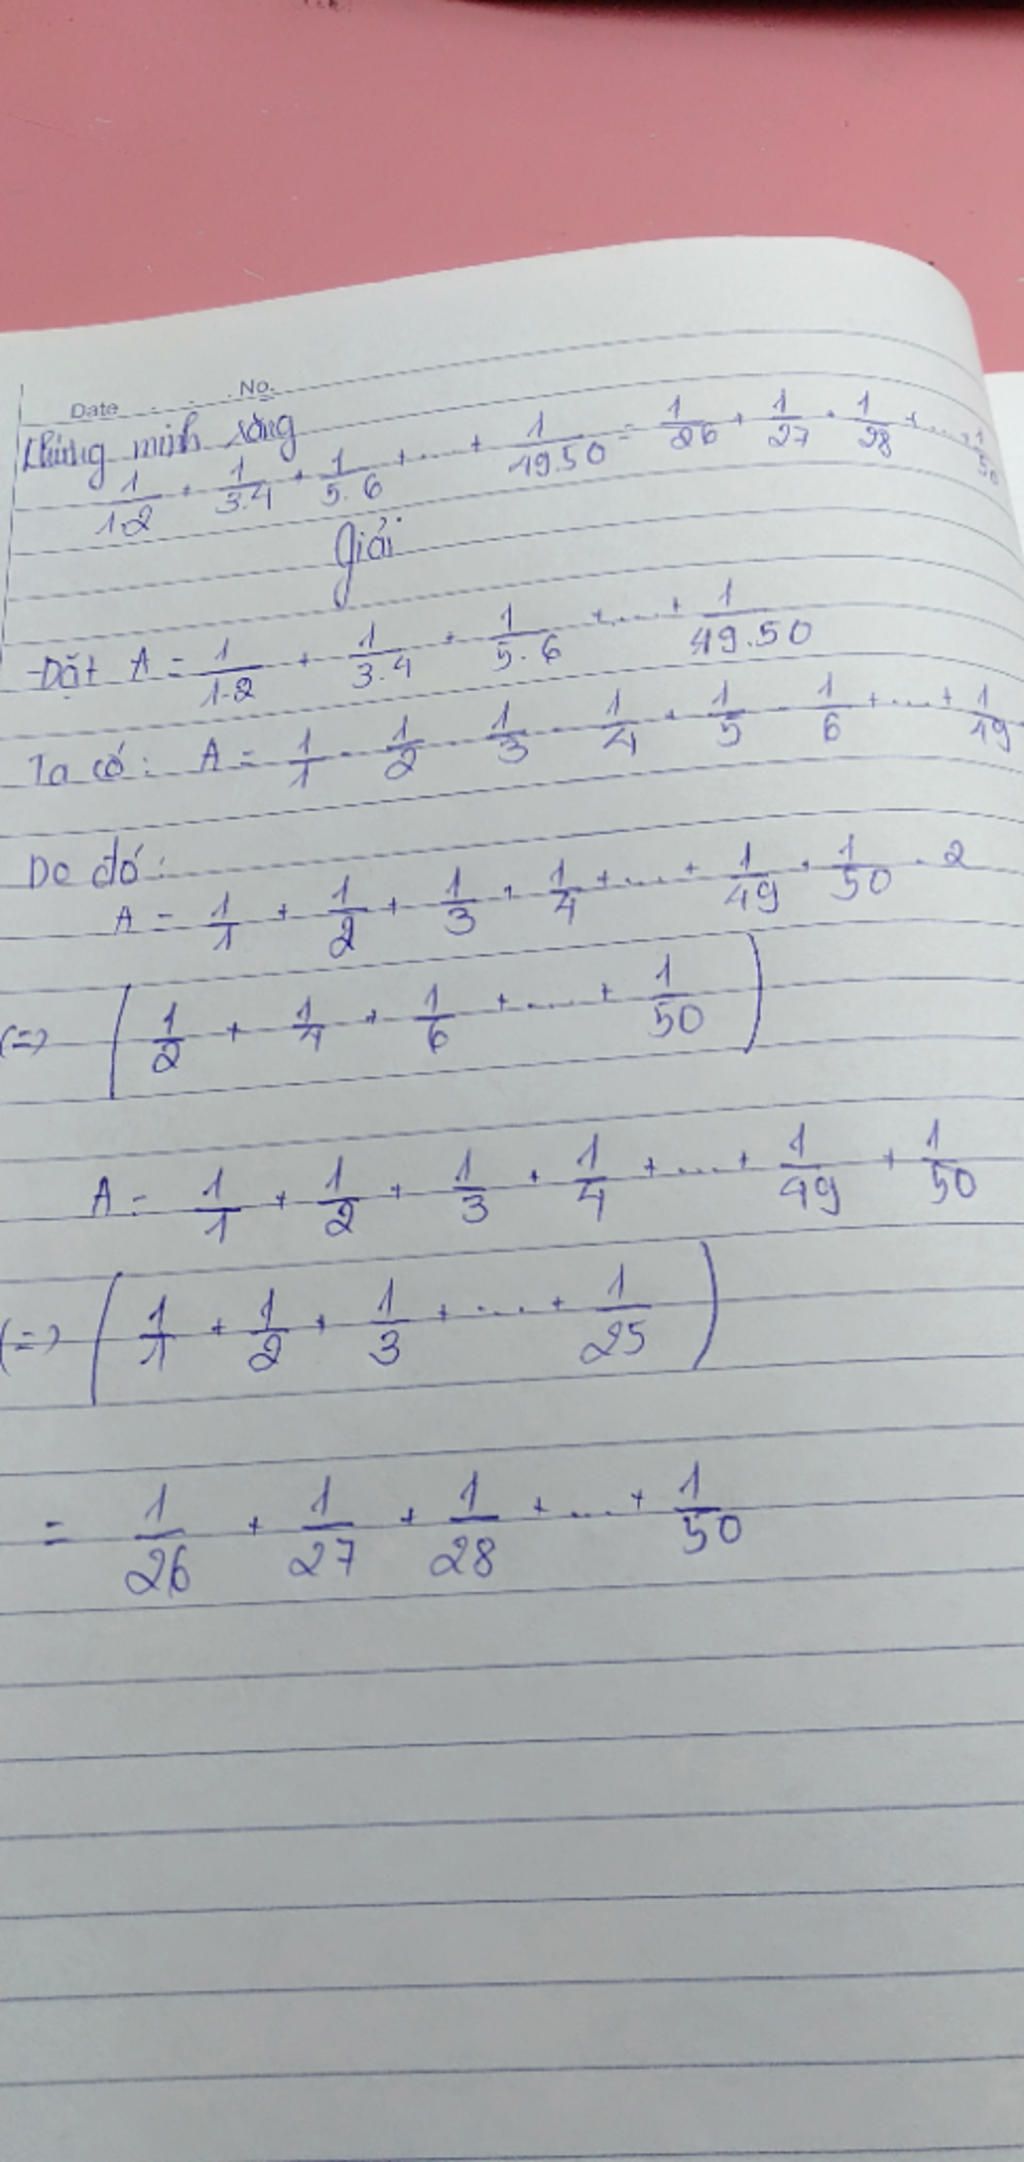 Date No.
Chứng minh rằng
1/1.2 + 1/3.4 + 1/5.6 + ... + 1/49.50 = 1/26 + 1/27 + 1/28 + ... + 1/50
Giải
Đặt A = 1/1.2 + 1/3.4 + 1/5.6 + ... + 1/49.50
Ta có: A = 1/1 - 1/2 - 1/3 - 1/4 + 1/5 - 1/6 + ... + 1/49
Do đó:
A = 1/1 + 1/2 + 1/3 + 1/4 + ... + 1/49 + 1/50 - 2
(=) (1/2 + 1/4 + 1/6 + ... + 1/50)
A = 1/1 + 1/2 + 1/3 + 1/4 + ... + 1/49 + 1/50
(=) (1/1 + 1/2 + 1/3 + ... + 1/25)
= 1/26 + 1/27 + 1/28 + ... + 1/50